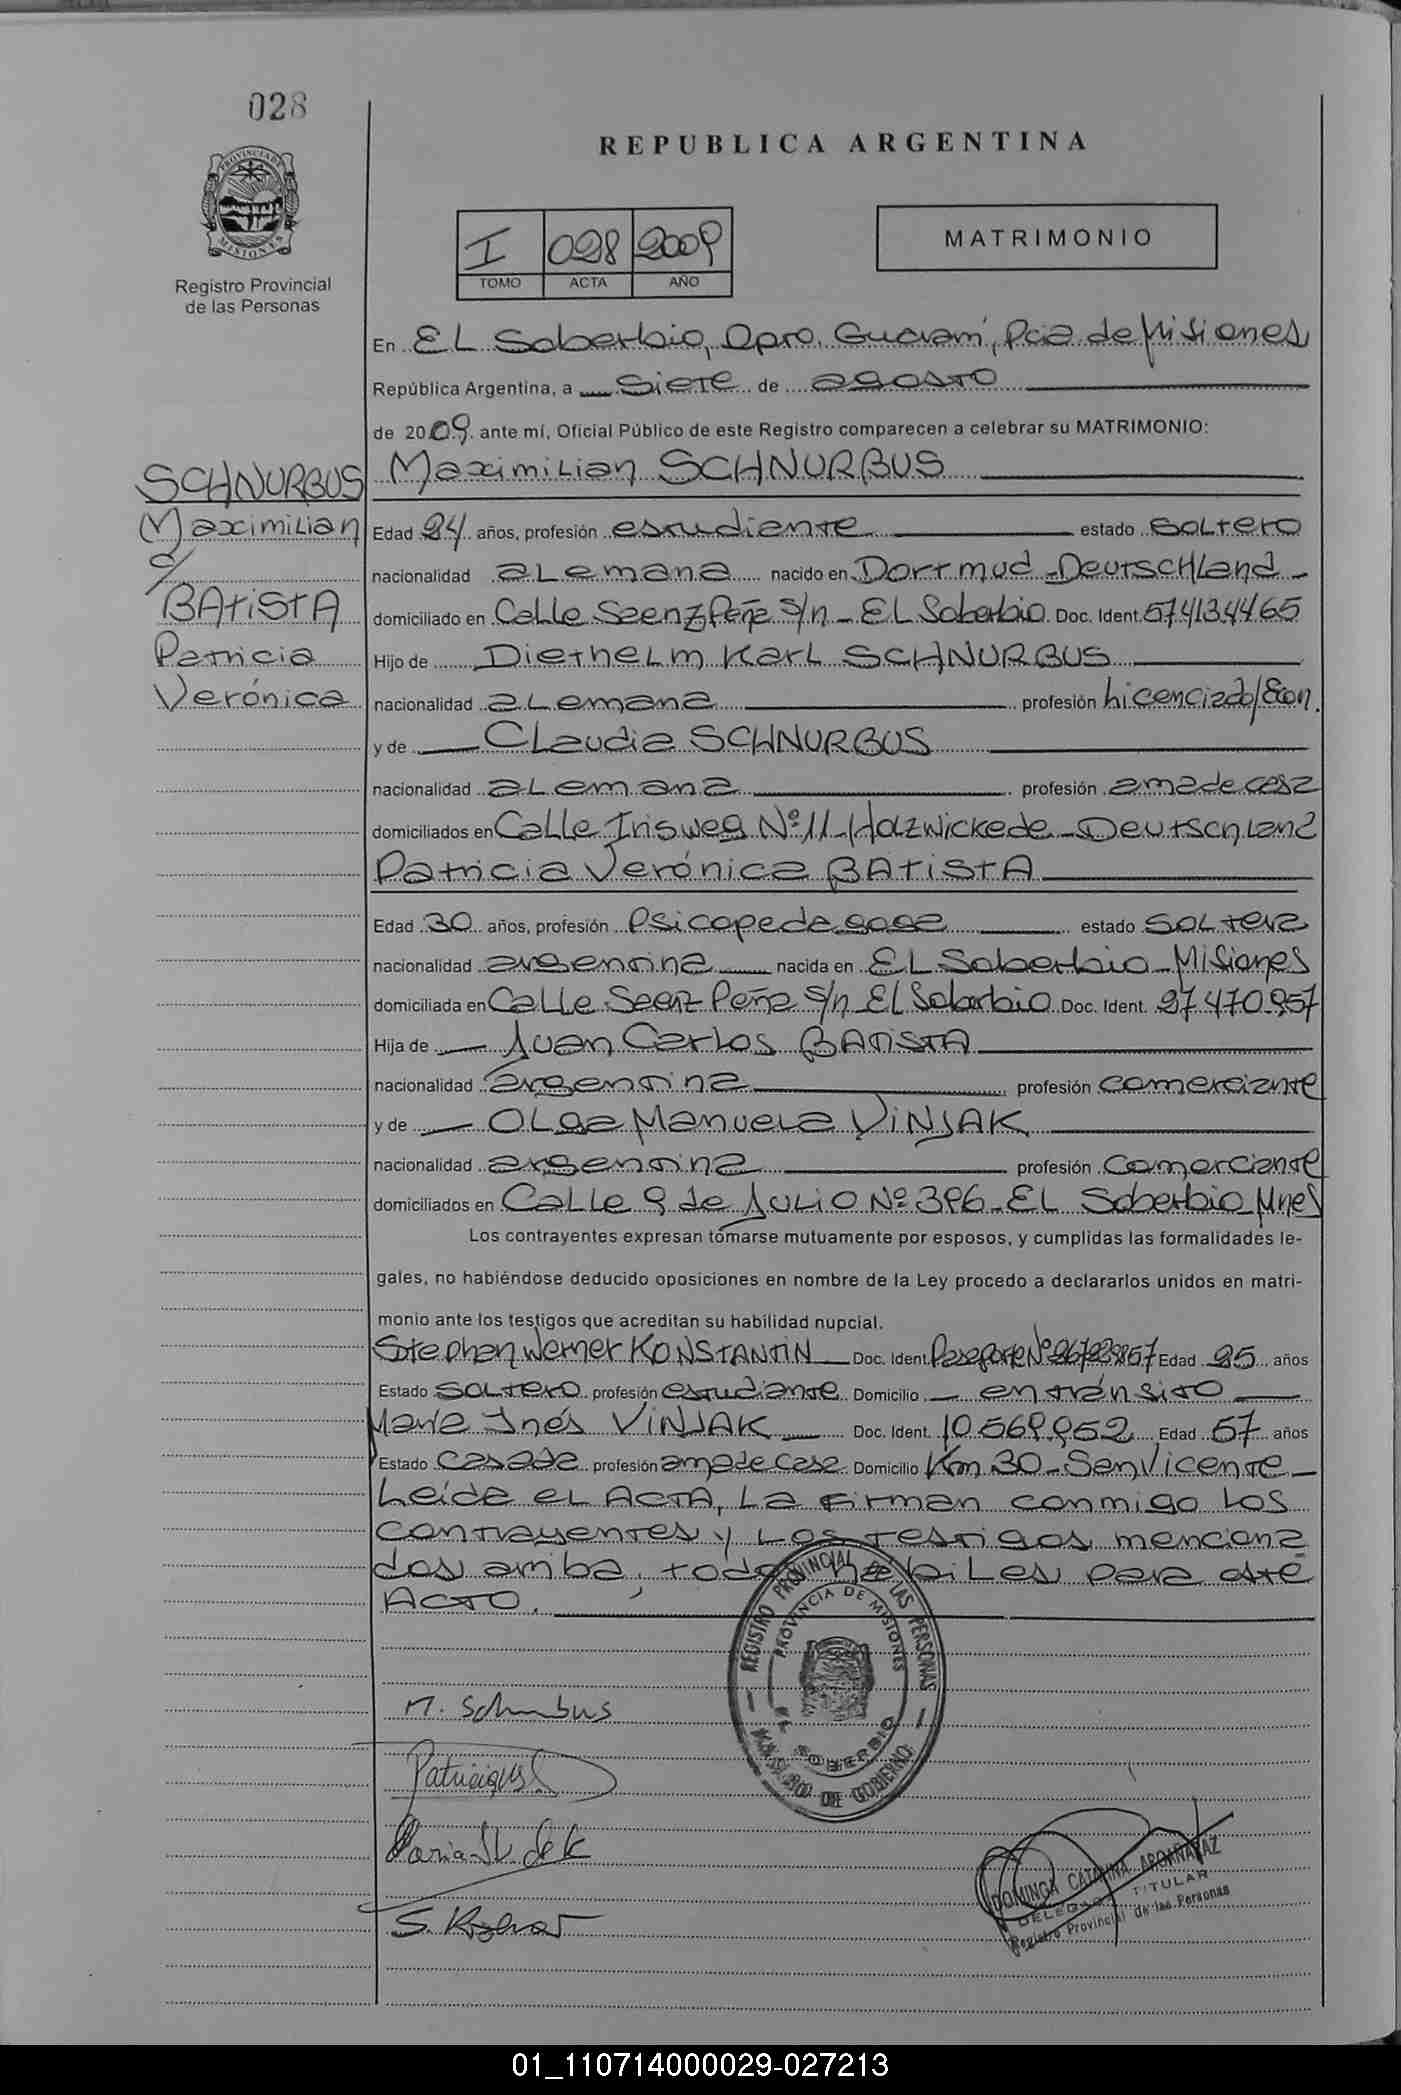 028
REPUBLICA ARGENTINA
PROVINCIA DE MISIONES
Registro Provincial
de las Personas
I 028 2009
TOMO ACTA AÑO
MATRIMONIO
En EL Soberbio, Dpto. Guaraní, Pcia de Misiones
República Argentina, a siete de agosto
de 2009 ante mí, Oficial Público de este Registro comparecen a celebrar su MATRIMONIO:
Maximilian SCHNURBUS
SCHNURBUS
Maximilian
c/
BATISTA
Patricia
Verónica
Edad 24 años, profesión estudiante estado soltero
nacionalidad alemana nacido en Dortmud - Deutschland -
domiciliado en Calle Saenz Peña s/n - EL Soberbio Doc. Ident. 574134465
Hijo de Diethelm Karl SCHNURBUS
nacionalidad alemana profesión Licenciado/Econ.
y de Claudia SCHNURBUS
nacionalidad alemana profesión ama de casa
domiciliados en Calle Irisweg Nº 11 - Holzwickede - Deutschland
Patricia Verónica BATISTA
Edad 30 años, profesión Psicopedagoga estado soltera
nacionalidad argentina nacida en EL Soberbio - Misiones
domiciliada en Calle Saenz Peña s/n EL Soberbio Doc. Ident. 27.470.957
Hija de Juan Carlos BATISTA
nacionalidad argentina profesión comerciante
y de OLga Manuela VINJAK
nacionalidad argentina profesión comerciante
domiciliados en Calle 9 de Julio Nº 396 - EL Soberbio Mnes
Los contrayentes expresan tomarse mutuamente por esposos, y cumplidas las formalidades le-
gales, no habiéndose deducido oposiciones en nombre de la Ley procedo a declararlos unidos en matri-
monio ante los testigos que acreditan su habilidad nupcial.
Stephan Werner KONSTANTIN Doc. Ident. Pasaporte Nº Edad 25 años
Estado soltero profesión estudiante Domicilio - en tránsito
María Inés VINJAK Doc. Ident. 10.569.952 Edad 57 años
Estado casada profesión ama de casa Domicilio Km 30 - San Vicente -
Leída el ACTA, La firman conmigo los
contrayentes y Los testigos menciona
dos arriba, todos habiles para este
ACTO.
REGISTRO PROVINCIAL DE LAS PERSONAS
PROVINCIA DE MISIONES
EL SOBERBIO
DE GOBIERNO
M. Schnurbus
DOMINGA CATALINA ARGAÑARAZ
DELEGADA TITULAR
Registro Provincial de las Personas
01_110714000029-027213